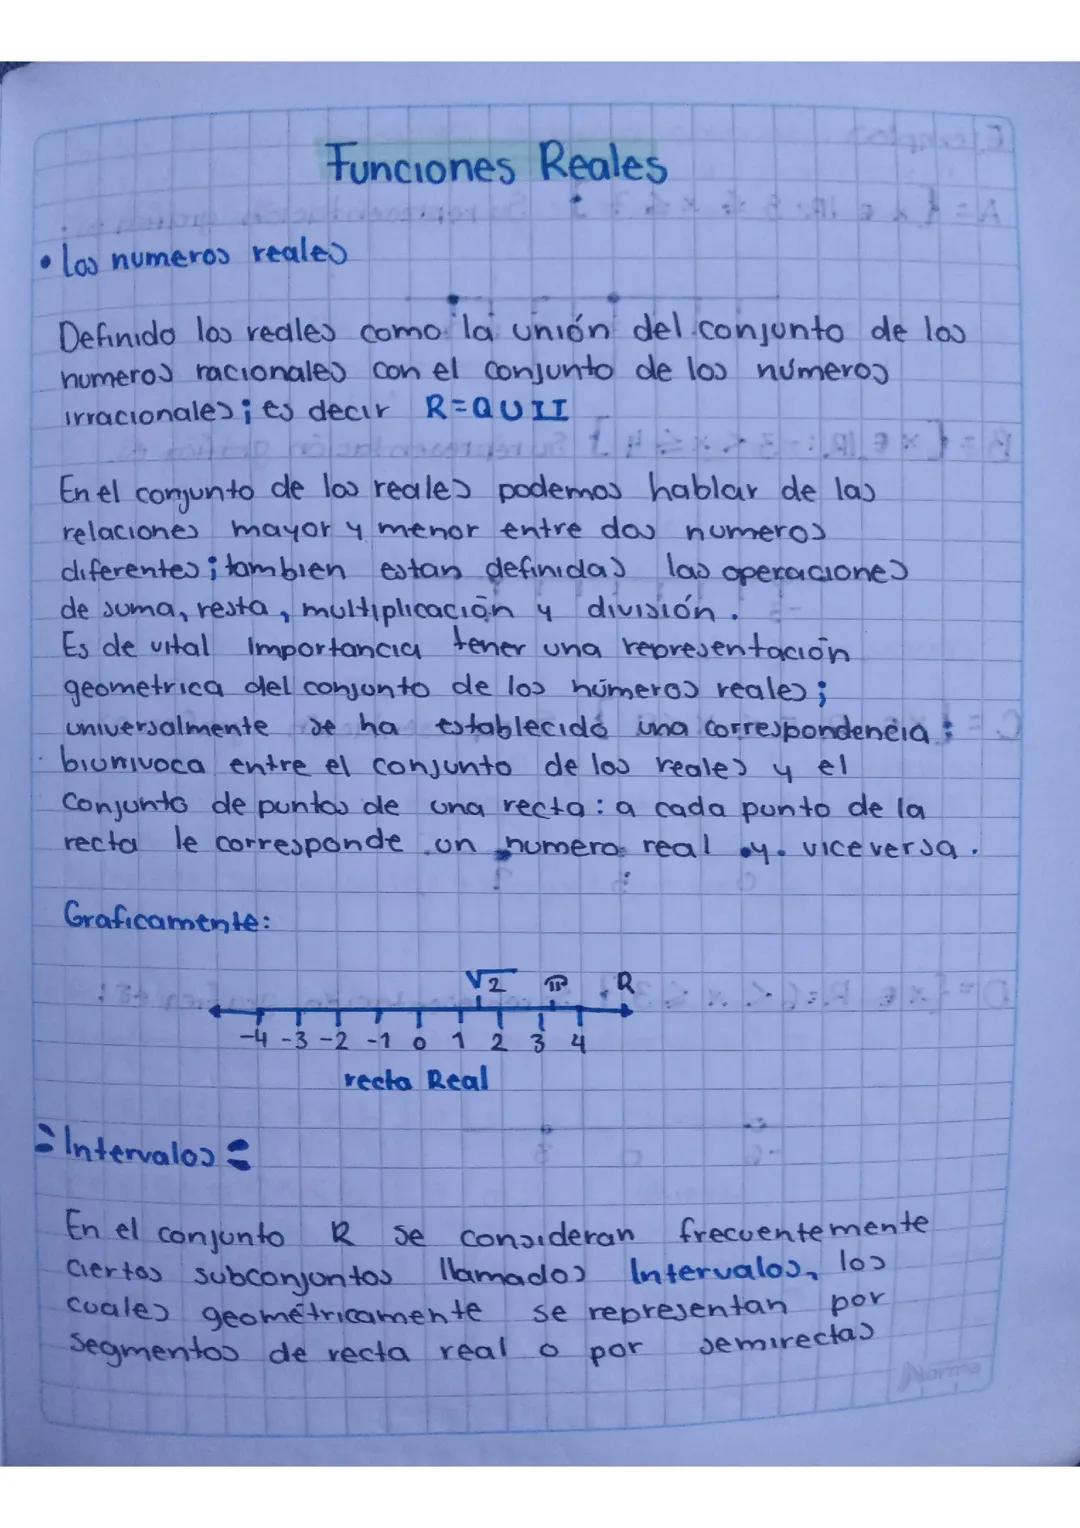 Funciones Reales
• Los numeros reales
Definido los reales como la unión del conjunto de los
numeros racionales con el conjunto de los números
irracionales; es decir R=QUII
En el conjunto de los reales podemos hablar de las
relaciones mayor y menor entre dos numeros
diferentes; tambien estan definidas las operaciones
de suma, resta, multiplicación y división.
Es de vital Importancia tener una representación
geometrica del conjunto de los números reales;
universalmente se ha establecido una correspondencia
biunivoca entre el conjunto de los reales y el
Conjunto de puntos de una recta: a cada punto de la
recta le corresponde un numero real y viceversa.
Graficamente:
√2 π R
-4 -3 -2 -1 0 1 2 3 4
recta Real
Intervalos
En el conjunto R se consideran frecuentemente
ciertos subconjuntos llamados Intervalos, los
cuales geométricamente se representan por
segmentos de recta real o por semirectas
Norma